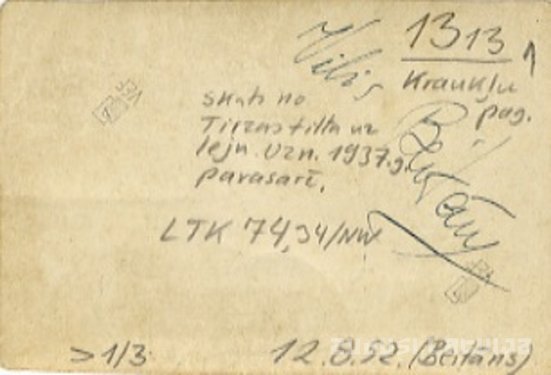 1313
Vilis
Kraukļu
pag.
Skats no
Tirzas tilta uz
leju. Uzn. 1937.g.
pavasarī.
LTK 74,34/NW
>1/3
12.8.52. (Beitāns)